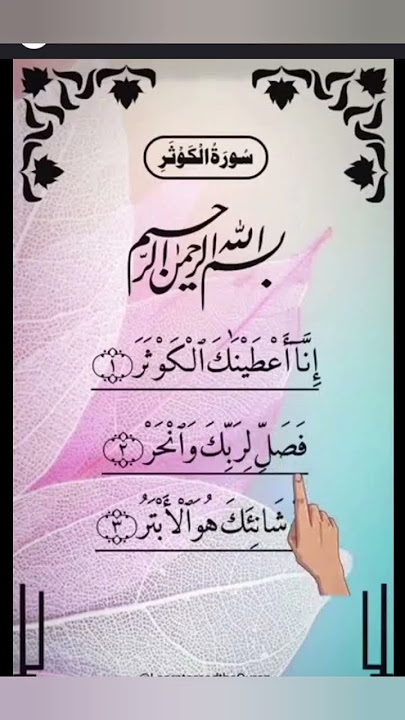 سُورَةُ الْكَوْثَرِ
بسم الله الرحمن الرحيم
إِنَّآ أَعْطَيْنَٰكَ ٱلْكَوْثَرَ ١
فَصَلِّ لِرَبِّكَ وَٱنْحَرْ ٢
شَانِئَكَ هُوَ ٱلْأَبْتَرُ ٣